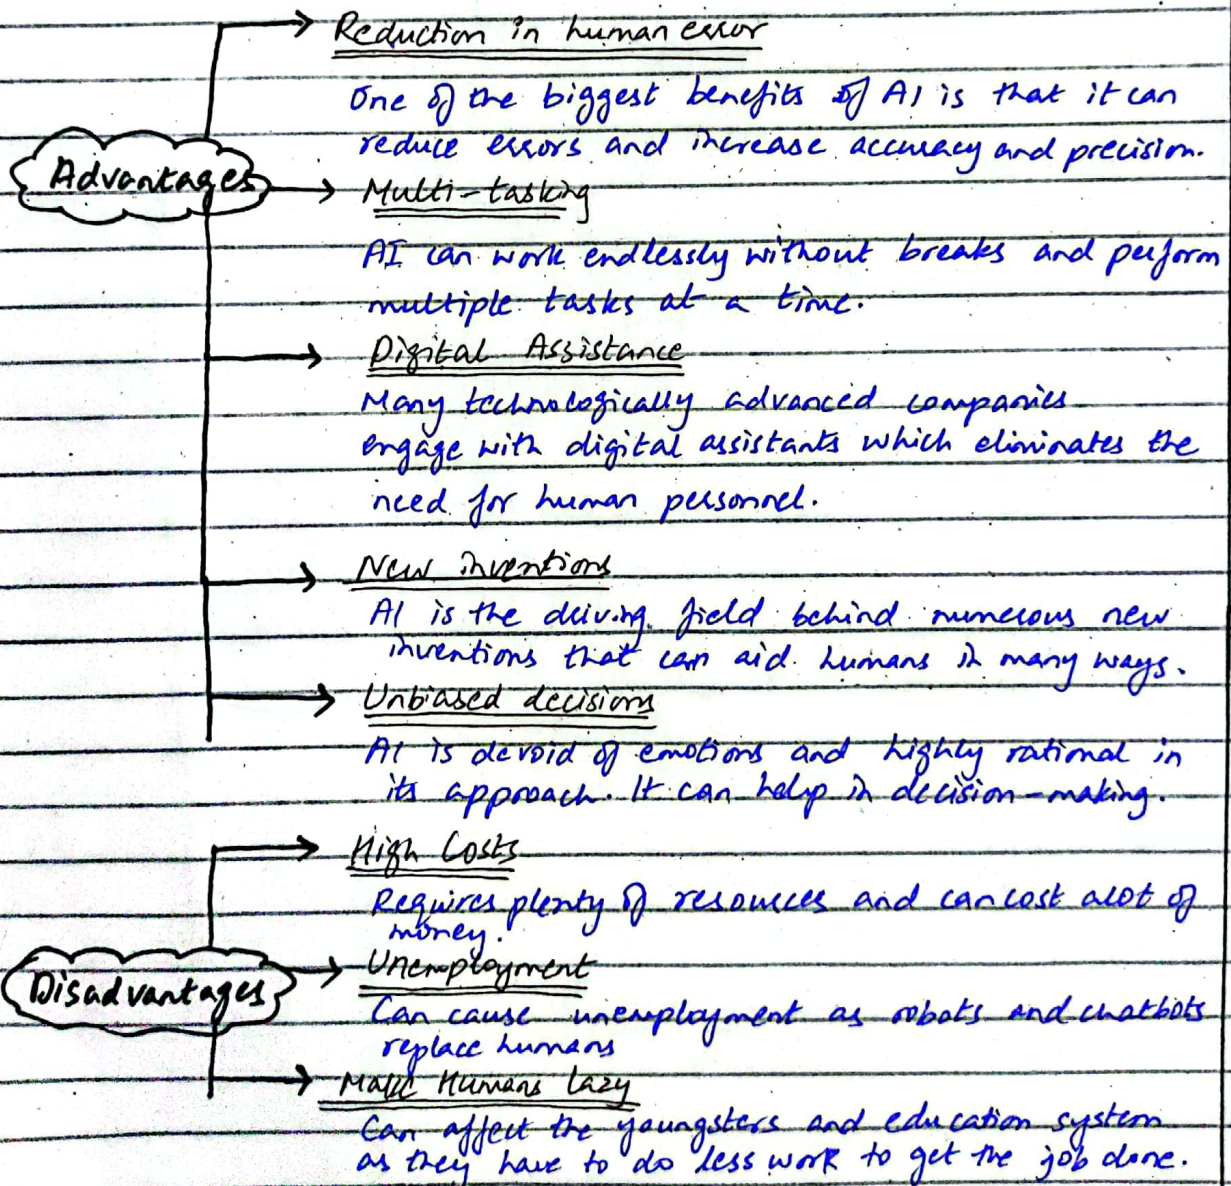 Reduction in human error
One of the biggest benefits of AI is that it can
reduce errors and increase accuracy and precision.
Advantages
Multi-tasking
AI can work endlessly without breaks and perform
multiple tasks at a time.
Digital Assistance
Many technologically advanced companies
engage with digital assistants which eliminates the
need for human personnel.
New inventions
AI is the driving field behind numerous new
inventions that can aid humans in many ways.
Unbiased decisions
AI is devoid of emotions and highly rational in
its approach. It can help in decision-making.
High Costs
Requires plenty of resources and can cost alot of
money.
Disadvantages
Unemployment
Can cause unemployment as robots and chatbots
replace humans
Make Humans Lazy
Can affect the youngsters and education system
as they have to do less work to get the job done.